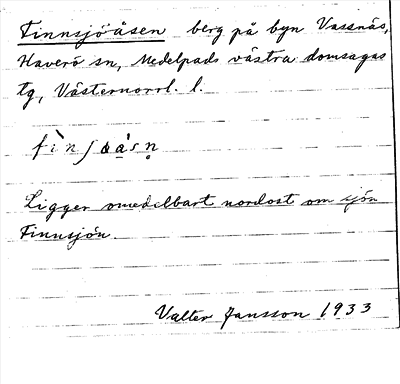 Finnsjöåsen berg på byn Vassnäs,
Haverö sn, Medelpads västra domsagas
tg, Västernorrl. l.
fìnʃöå̀sn̥
Ligger omedelbart nordost om sjön
Finnsjön.
Valter Jansson 1933